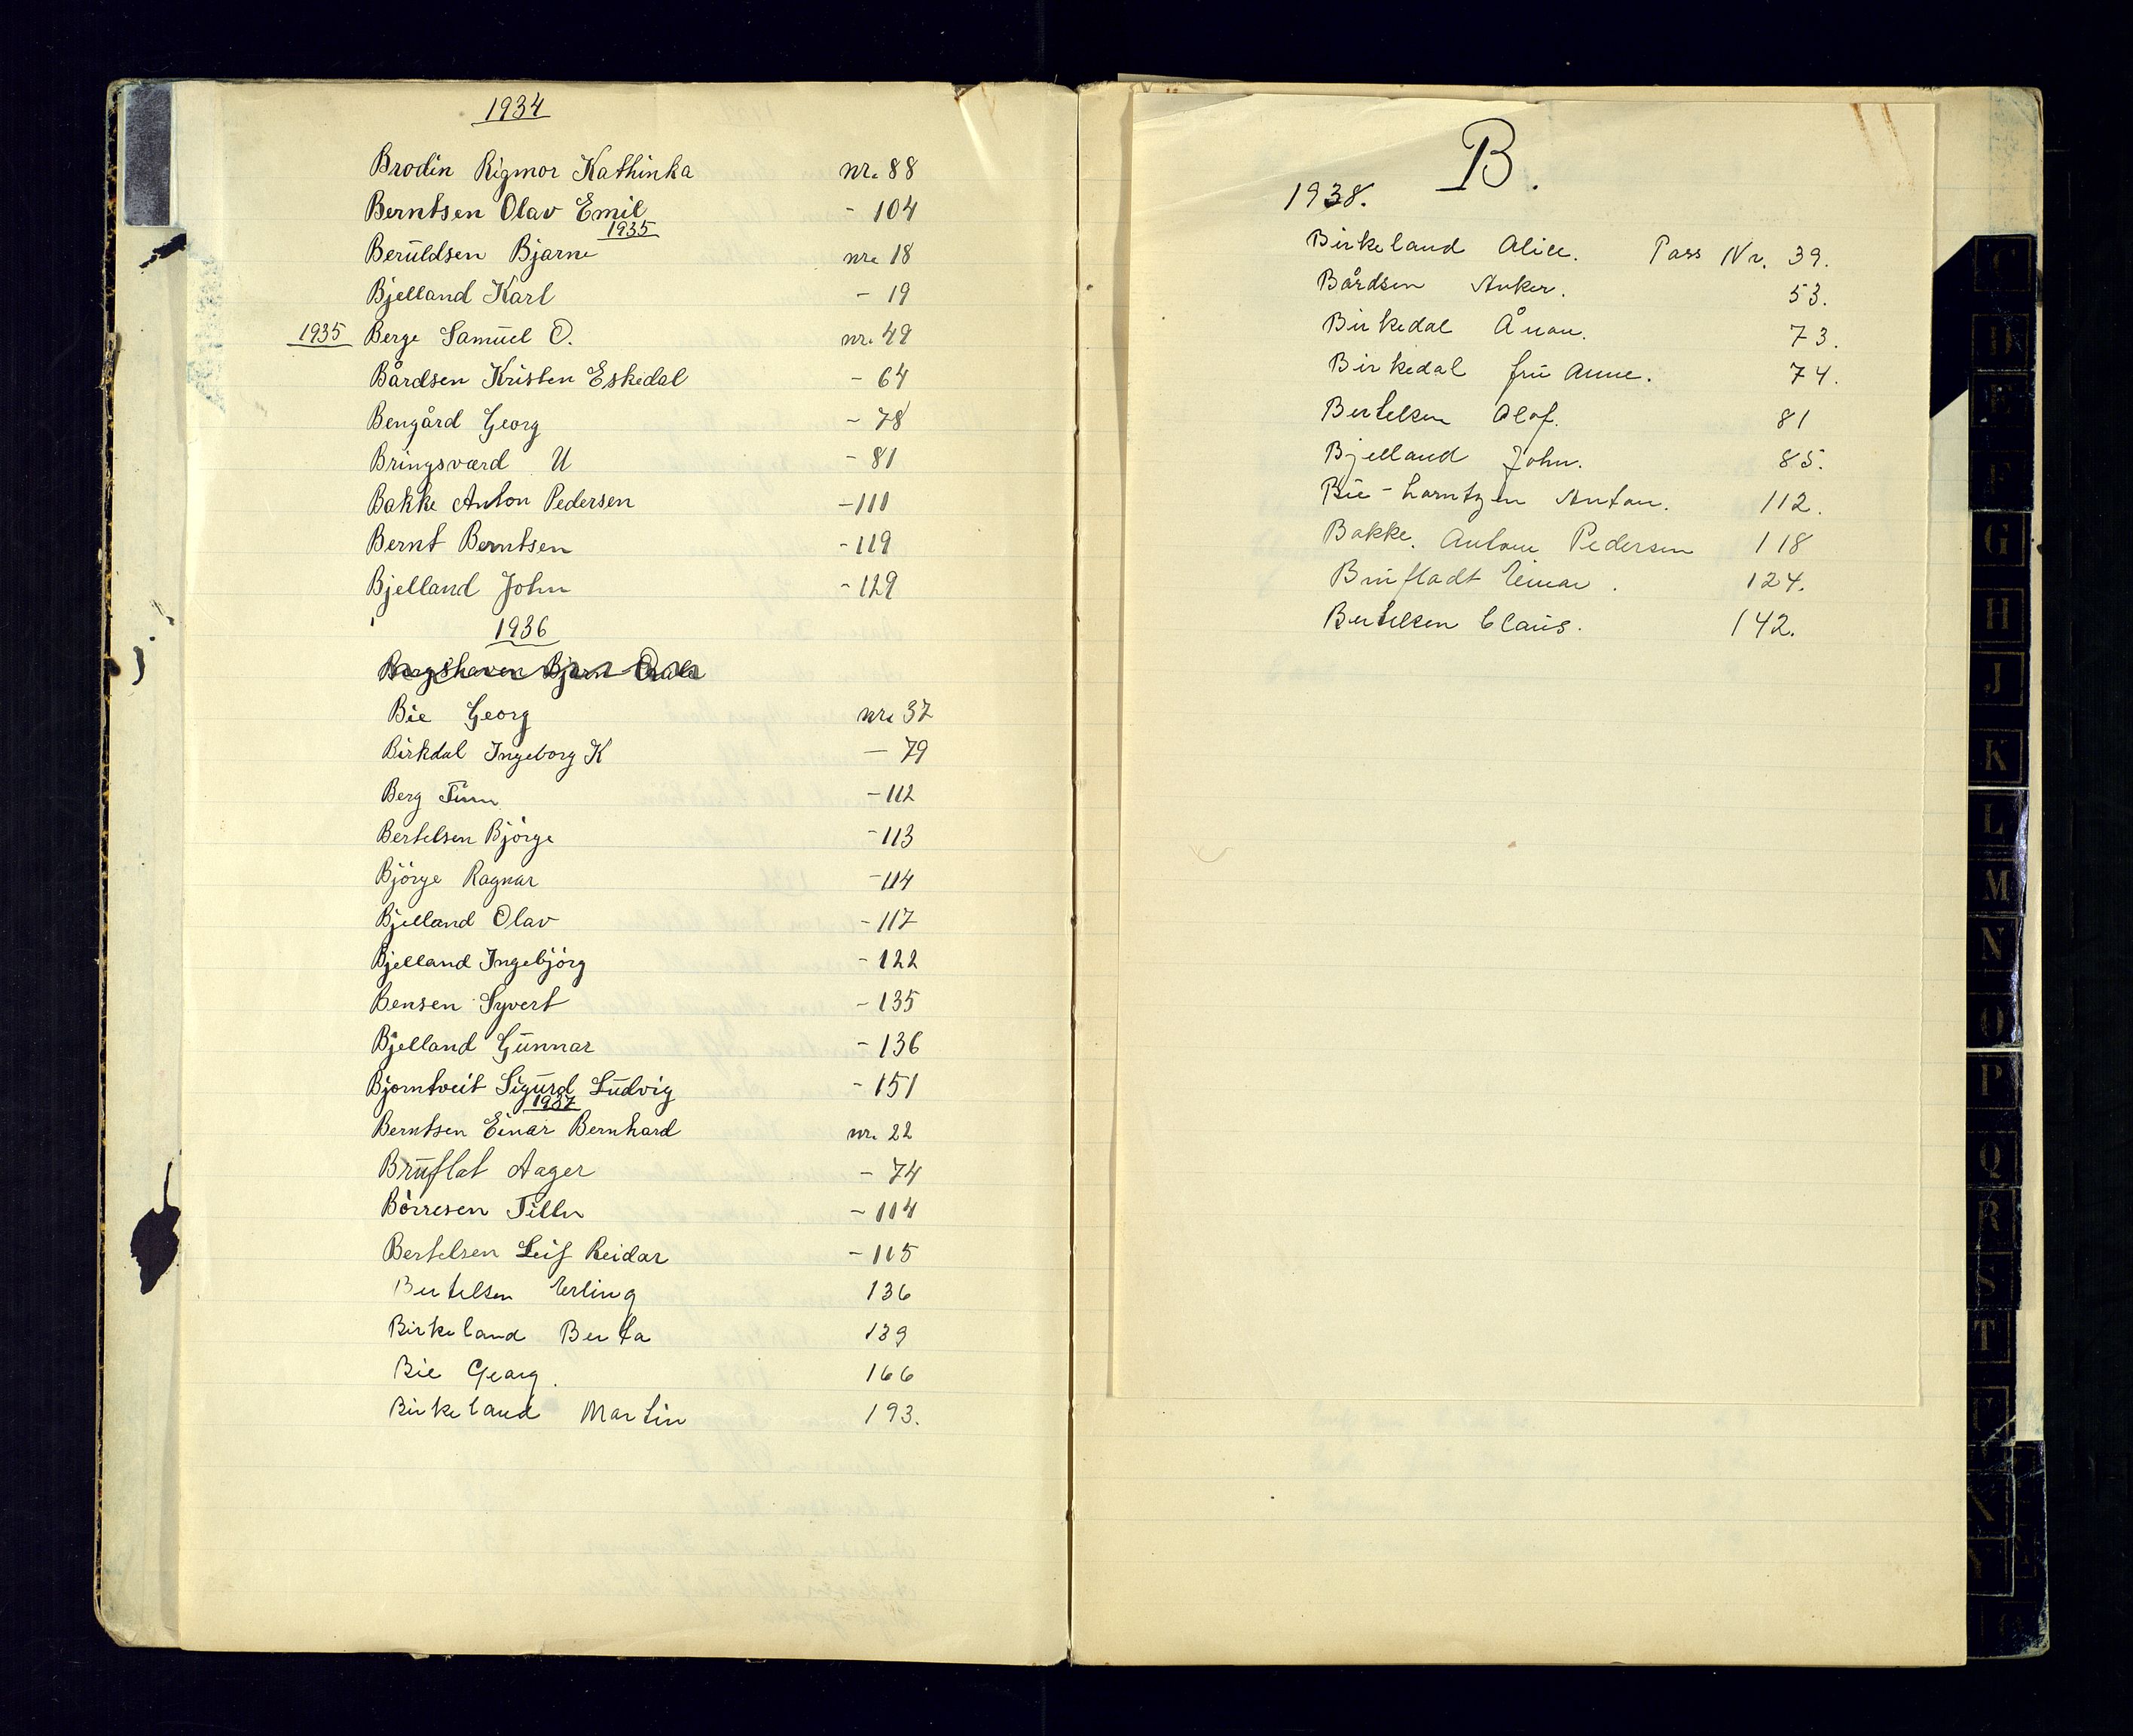 1934
Brodin Rigmor Kathinka nr. 88
Berntsen Olav Emil - 104
1935
Beruldsen Bjarne nr. 18
Bjelland Karl - 19
1935 Berge Samuel O. nr. 49
Bårdsen Kristen Eskedal - 64
Bengård Georg - 78
Bringsværd U - 81
Bakke Anton Pedersen - 110
Bernt Berntsen - 119
Bjelland John - 129
1936
Bie Georg nr. 37
Birkdal Ingeborg K - 79
Berg Finn - 112
Bertelsen Björge - 113
Björge Ragnar - 114
Bjelland Olav - 117
Bjelland Ingebjörg - 122
Bensen Syvert - 135
Bjelland Gunnar - 136
Bjorntveit Sigurd Ludvig - 151
1937
Berntsen Einar Bernhard nr. 22
Bruflat Aager - 74
Börresen - 114
Bertelsen Leif Reidar - 115
Bertelsen Erling 136
Birkeland Berta 139
Bie Georg. 166
Birkeland Martin 193.
B.
1938.
Birkeland Alice. Pass Nr. 39.
Bårdsen Anker. 53.
Birkedal 73.
Birkedal fru Anne. 74.
Bertelsen Olof. 81
Bjelland John. 85.
Bie-Lorntzen Anton. 112.
Bakke. Anton Pedersen 118
Brufladt Einar. 124.
Bertelsen Claus. 142.
C
D
E
F
G
H
J
K
L
M
N
O
P
Q
R
S
T